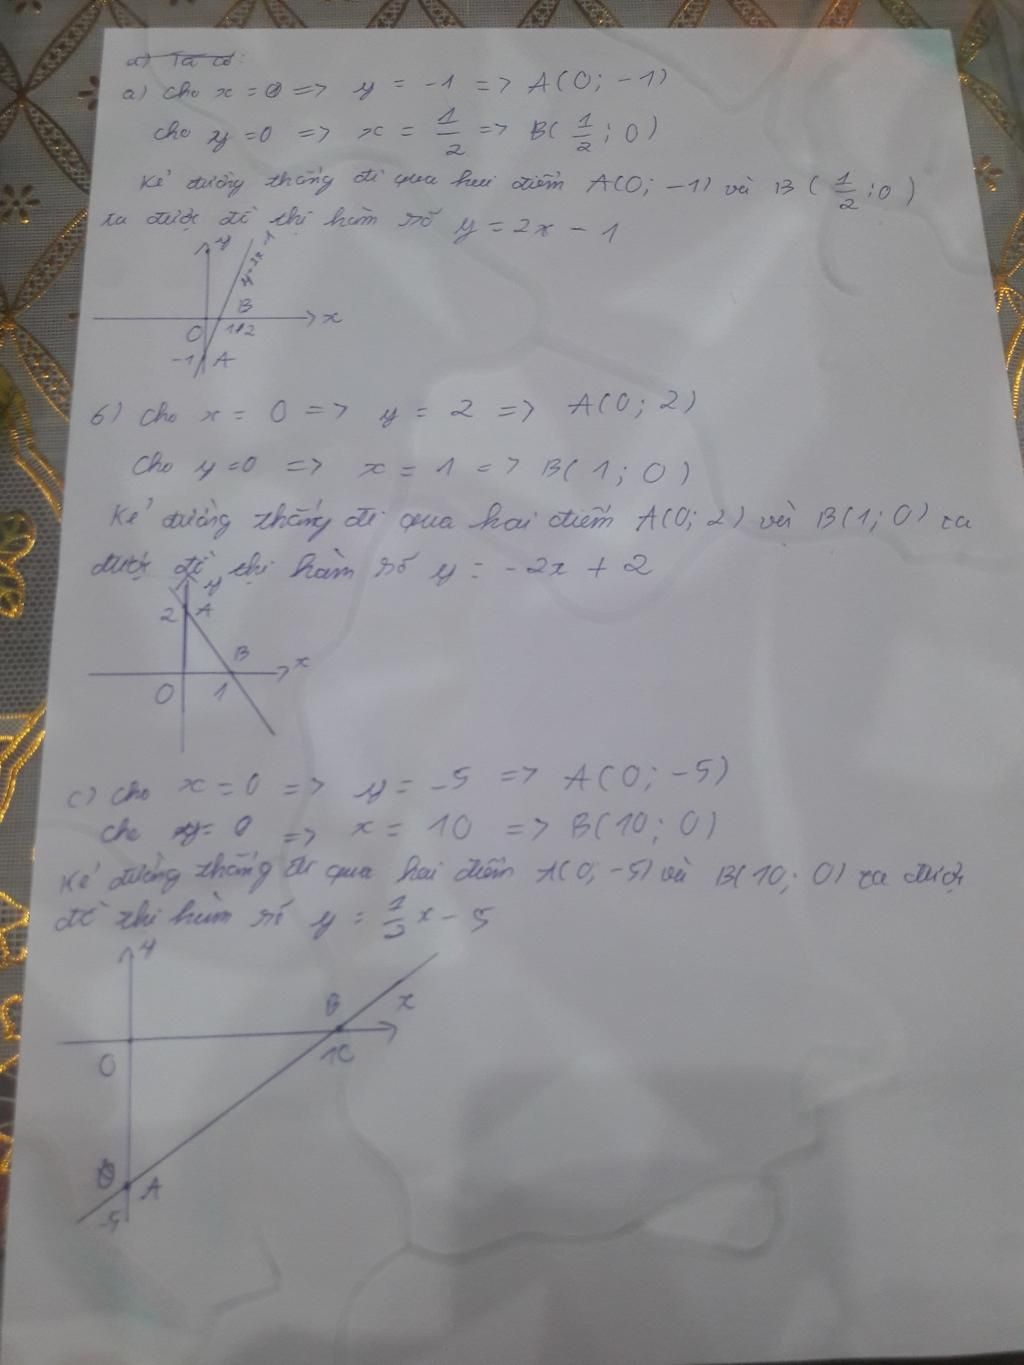 a) Ta có:
a) Cho x = 0 => y = -1 => A(0; -1)
Cho y = 0 => x = 1/2 => B(1/2; 0)
Kẻ đường thẳng đi qua hai điểm A(0; -1) và B(1/2; 0)
ta được đồ thị hàm số y = 2x - 1
y
y = 2x - 1
B
x
O
1/2
-1 A
b) Cho x = 0 => y = 2 => A(0; 2)
Cho y = 0 => x = 1 => B(1; 0)
Kẻ đường thẳng đi qua hai điểm A(0; 2) và B(1; 0) ta
được đồ thị hàm số y = -2x + 2
y
2 A
B x
O 1
c) Cho x = 0 => y = -5 => A(0; -5)
Cho y = 0 => x = 10 => B(10; 0)
Kẻ đường thẳng đi qua hai điểm A(0; -5) và B(10; 0) ta được
đồ thị hàm số y = 1/2 x - 5
y
B x
O 10
A
-5